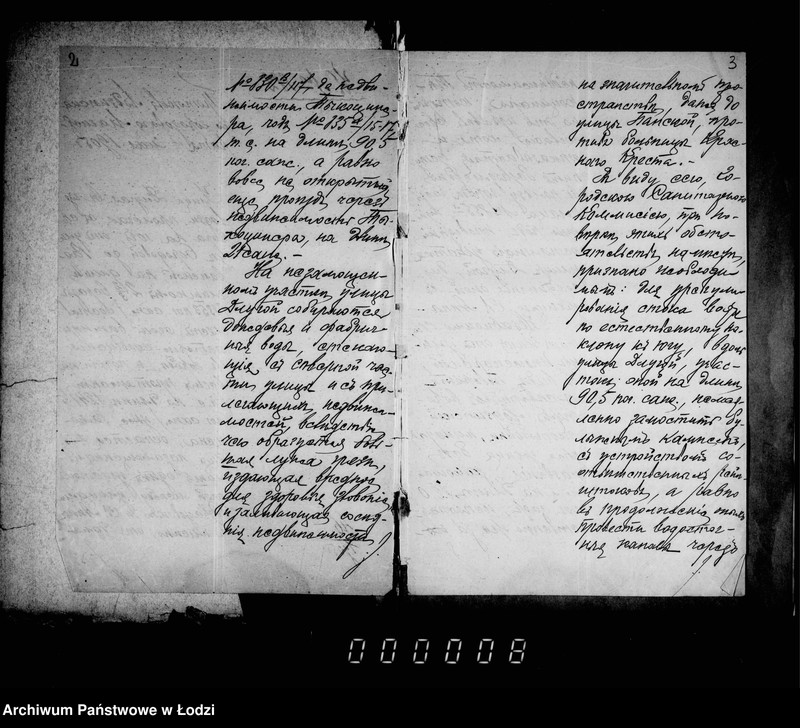 2
№ 830 а/15/17 до недви-
жимости Тыкоцине-
ра, подъ № 835 д/15-17,
т.е. на длинѣ 90,5
пог. саж., а равно
вовсе не открытый
еще проѣздъ черезъ
недвижимость Ты-
коцинера, на длинѣ
саж. —
На незамощен-
номъ участкѣ улицы
Длугой собираются
дождевыя и фабрич-
ныя воды, стекаю-
щія съ створной час-
ти улицы и съ при-
легающихъ недвижи-
мостей, вслѣдствіе
чего образуется
лужа грязи,
издающая вредное
для здоровья зловоніе
и заливающая сосѣд-
нія недвижимости
3
на значительномъ про-
странствѣ, даже до
улицы Панской, про-
тивъ больницы Крас-
наго Креста. —
Въ виду сего, Го-
родскою Санитарною
Коммисіею, при по-
вѣркѣ этихъ обсто-
ятельствъ на мѣстѣ,
признано необходи-
мымъ: для урегули-
рованія стока воды
по естественному на-
клону къ югу, вдоль
улицы Длугой, учас-
токъ оной на длинѣ
90,5 пог. саж., немед-
ленно замостить бу-
лыжнымъ камнемъ,
съ устройствомъ со-
отвѣтственныхъ рын-
штоковъ, а равно
въ продолженіи
провести водосточ-
ный каналъ черезъ
000008
Archiwum Państwowe w Łodzi